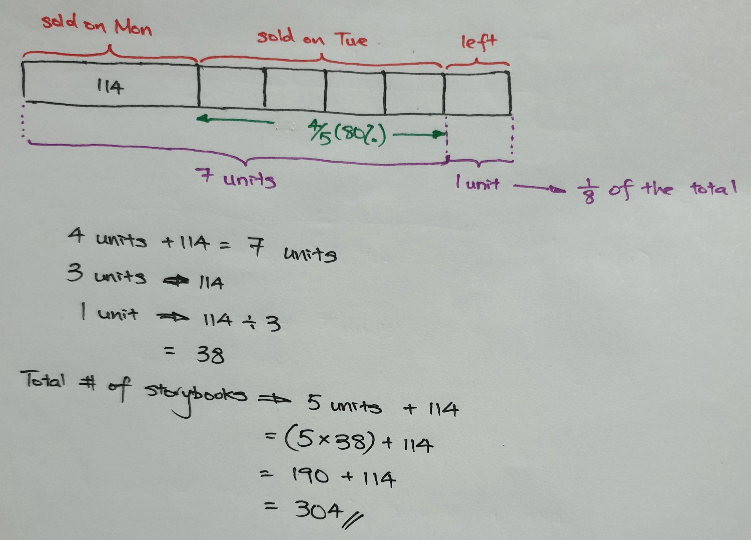 sold on Mon
sold on Tue
left
114
4/5 (80%)
7 units
1 unit → 1/8 of the total
4 units + 114 = 7 units
3 units ⇒ 114
1 unit ⇒ 114 ÷ 3
= 38
Total # of storybooks ⇒ 5 units + 114
= (5 × 38) + 114
= 190 + 114
= 304 //